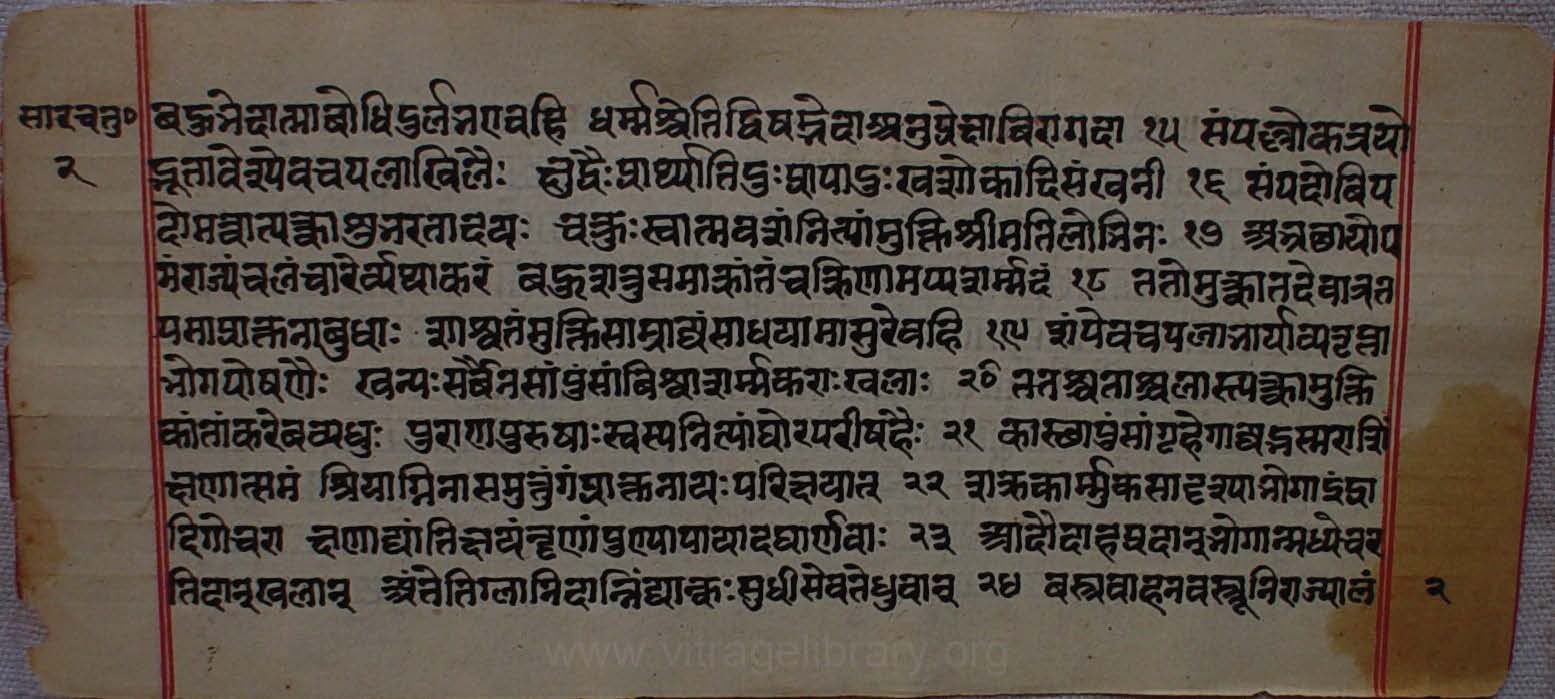 सारचतु०
२
बहुभेदात्माबोधिदुर्लभएवहि धर्म्मश्चेतिद्विषड्भेदाअनुप्रेक्षाविरागदा १५ संपल्लोकत्रयो
द्भूतावेश्येवचपलाखिलैः क्षुद्रैःप्रार्थ्यातिदुःप्रापादुःखशोकादिसंखनी १६ संपदोविप
दोमत्वात्यक्त्वाश्रुभरतादयः चक्रुःस्वात्मवशांनित्यांमुक्तिश्रीमतिलोभिनः १७ अभ्रछायोप
मंराज्यंचलंचारेर्व्यथाकरं बहुशत्रुसमाक्रांतंचक्रिणामप्यशर्म्मदं १८ ततोमुक्त्वातदेवात्रत
पसाप्राक्तनाबुधाः शाश्वतंमुक्तिसाम्राज्यंसाधयामासुरेवहि १९ शंपेवचपलाभार्याव्यतृप्ता
भोगपोषणैः खन्यःसर्वैनसांपुंसांविश्वाशर्म्मकराःखलाः २० ततश्चताश्चलास्त्यक्त्वामुक्ति
कांतांकरेबव्यधुः पुराणपुरुषाःस्वस्यनित्यांघोरपरीषहैः २१ कास्छापुंसांगृहेगाद्यद्भस्मराशिं
क्षणात्समं श्रियाग्निनासमुत्तुंगंप्राक्तनायःपरिक्षयात् २२ शक्रकार्म्मुकसादृश्याभोगाइंद्रा
दिगोचरा क्षणाद्यांतिक्षयंनृणांपुण्यापायादघार्णवाः २३ आदौदाहप्रदान्भोगान्मध्येचर
तिदान्खलान् अंतेतिग्लानिदान्निंद्यान्कःसुधीसेवतेधुवान् २४ वस्त्रवाहनवस्तूनिराज्यालं
२
www.vitragelibrary.org